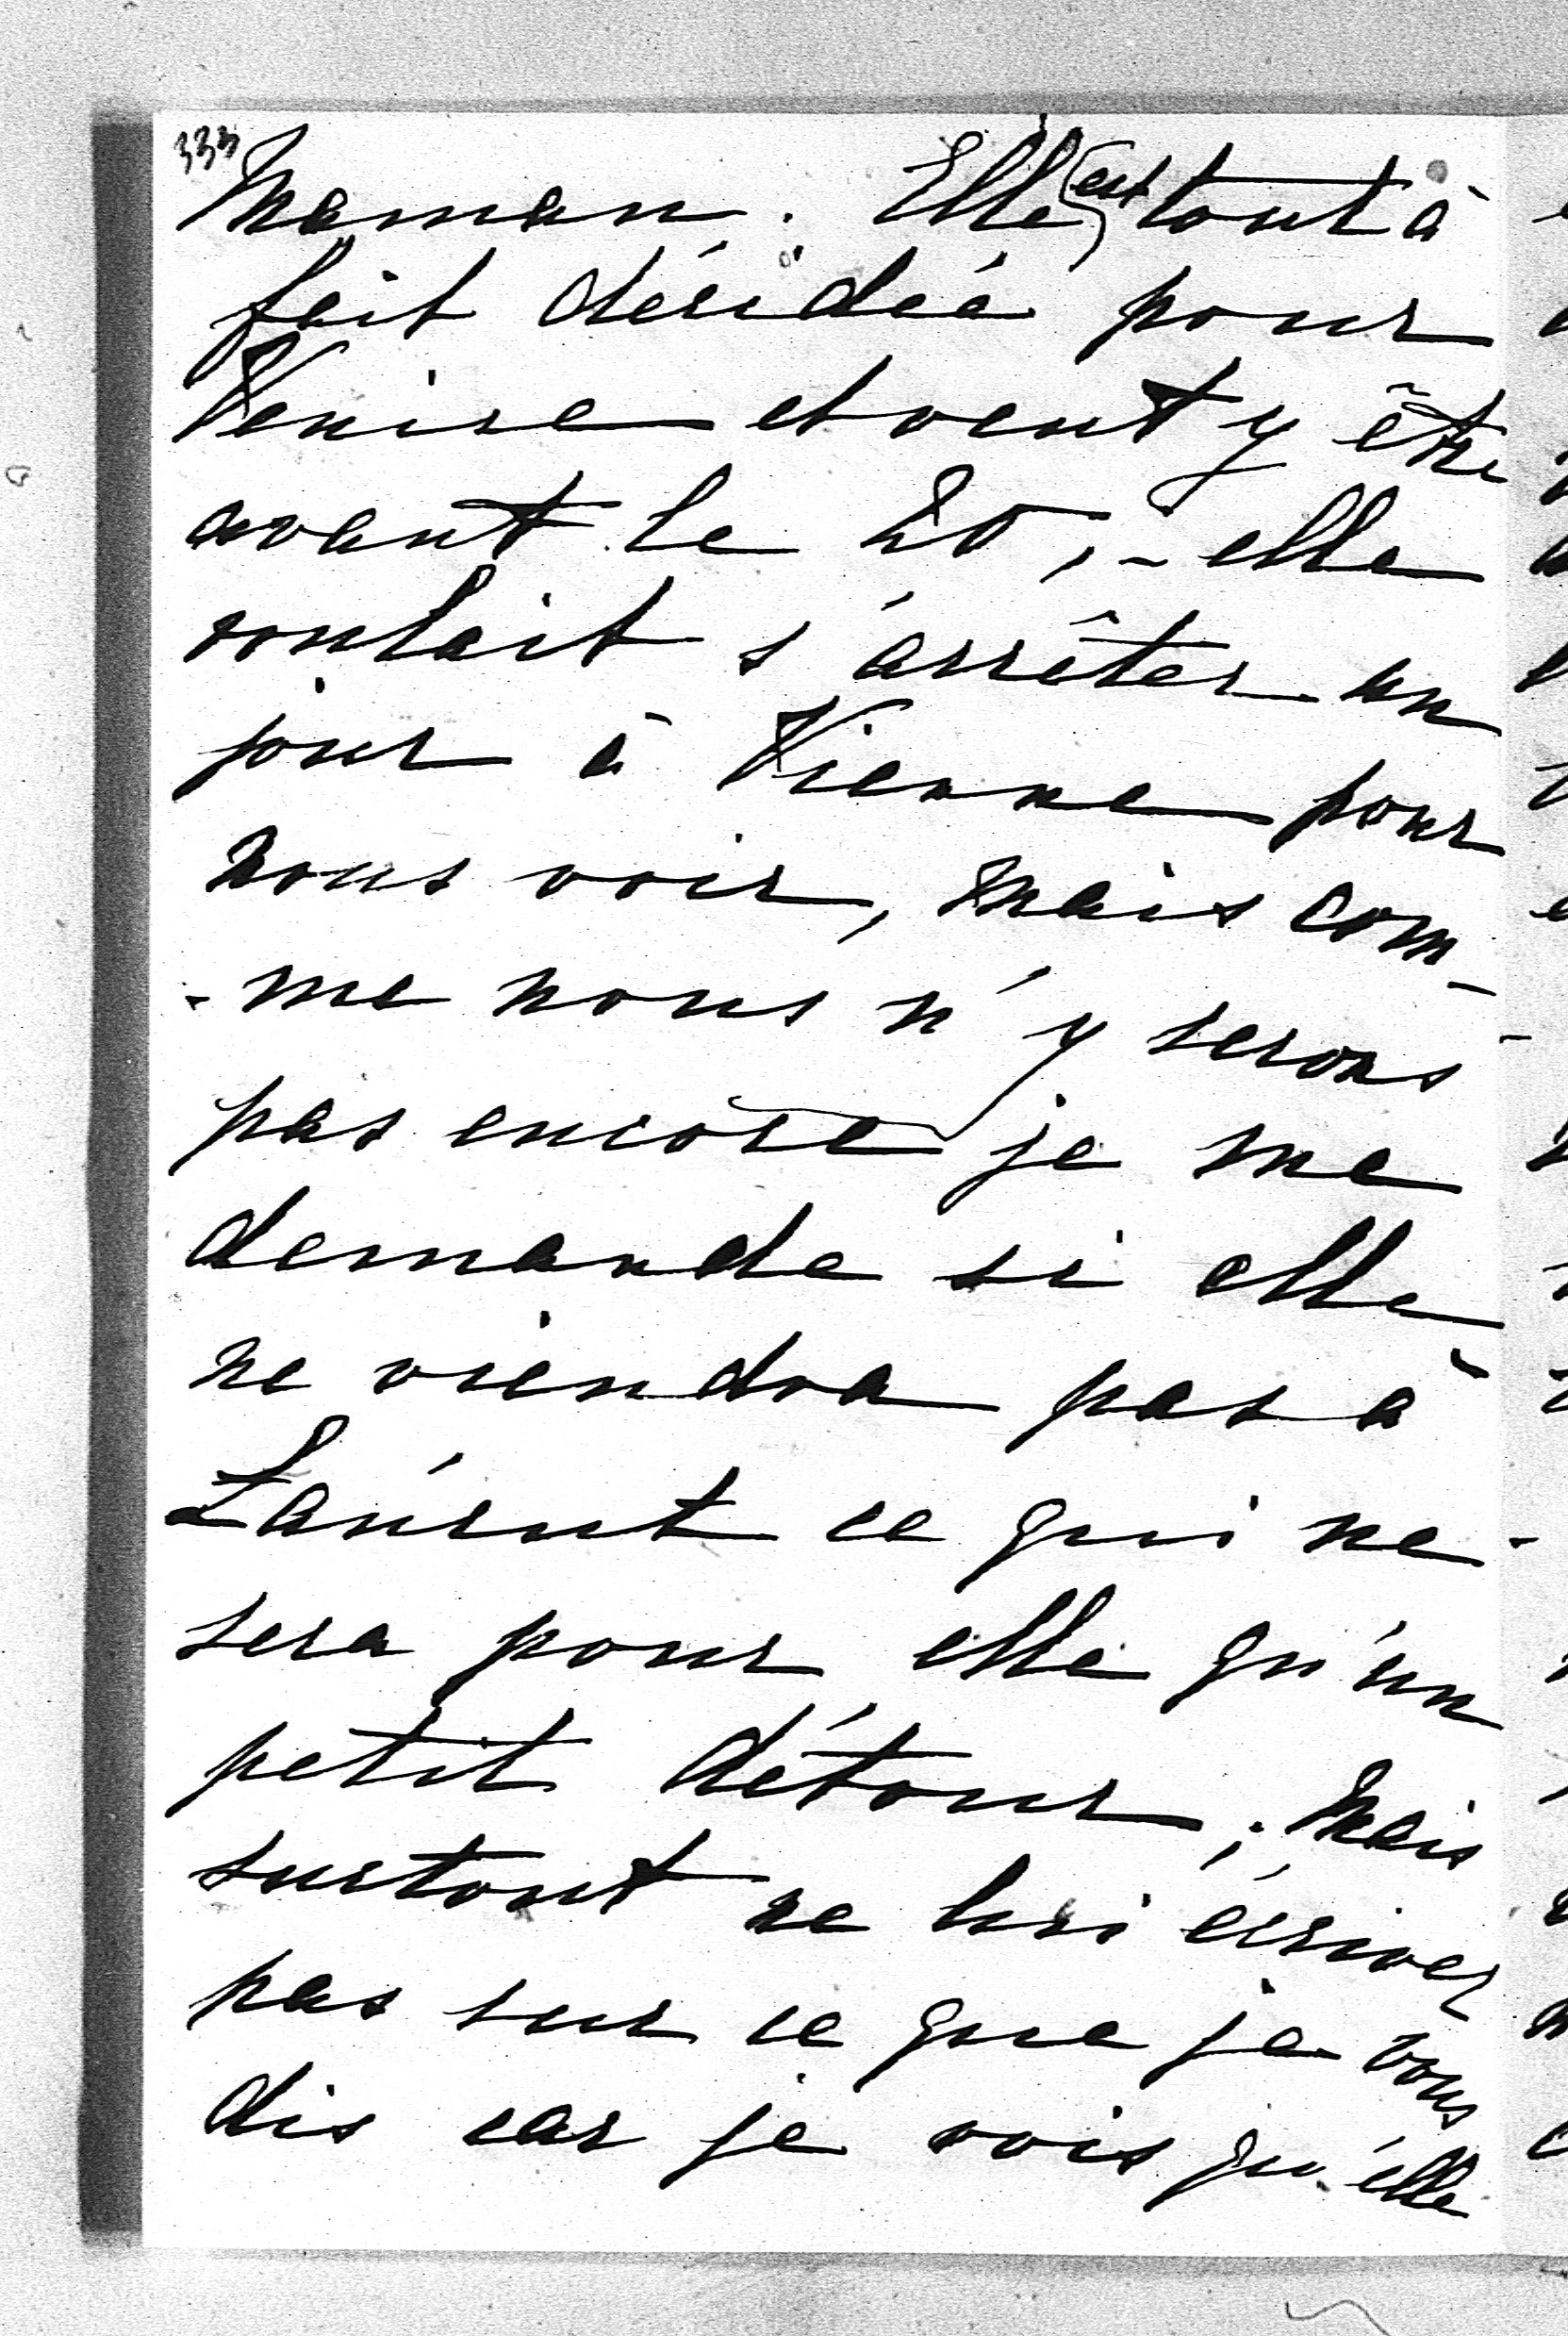 333
Maman. Elle est tout à
fait décidée pour
Venise et veut y être
avant le 20, - elle
voulait s'arrêter un
jour à Vienne pour
nous voir, mais com-
-me nous n'y serons
pas encore je me
demande si elle
ne viendra pas à
ce qui ne
sera pour elle qu'un
petit détour; mais
surtout ne lui écrivez
pas sur ce que je vous
dis car je vois qu'elle